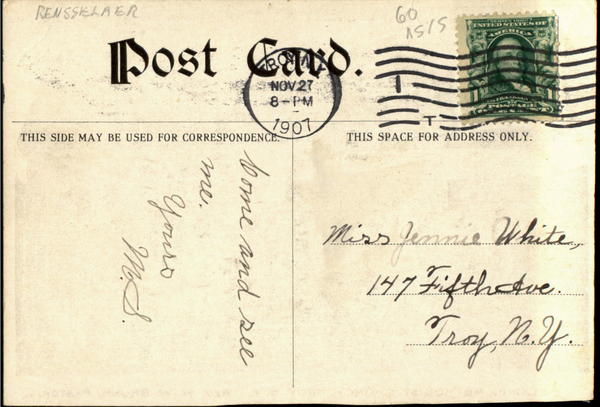 RENSSELAER
60
1515
Post Card.
TROY, N.Y.
NOV. 27
8-PM
1907
1
T
UNITED STATES OF
AMERICA
POSTAGE
THIS SIDE MAY BE USED FOR CORRESPONDENCE.
THIS SPACE FOR ADDRESS ONLY.
Come and see
me.
Yours
M.S.
Miss Jennie White,
147 Fifth Ave.
Troy, N.Y.